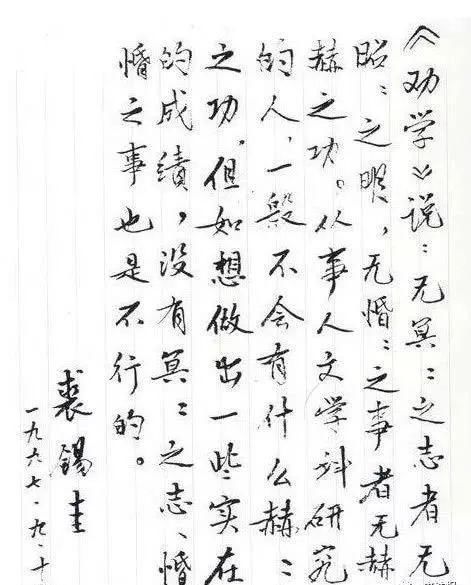 《劝学》说：无冥〻之志者无
昭〻之明，无惛〻之事者无赫
赫之功。从事人文学科研究
的人，一般不会有什么赫〻
之功，但如想做出一些实在
的成绩，没有冥〻之志、惛
惛之事也是不行的。
裘锡圭
一九六七·九·十